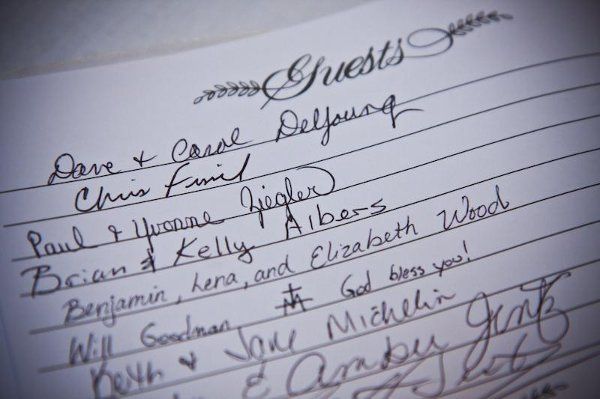 Guests
Dave & Carol DeYoung
Chris
Paul & Yvonne Ziegler
Brian & Kelly Albers
Benjamin, Lena, and Elizabeth Wood
Will Goodman God bless you!
Keith & Jane Michelin
& Amber